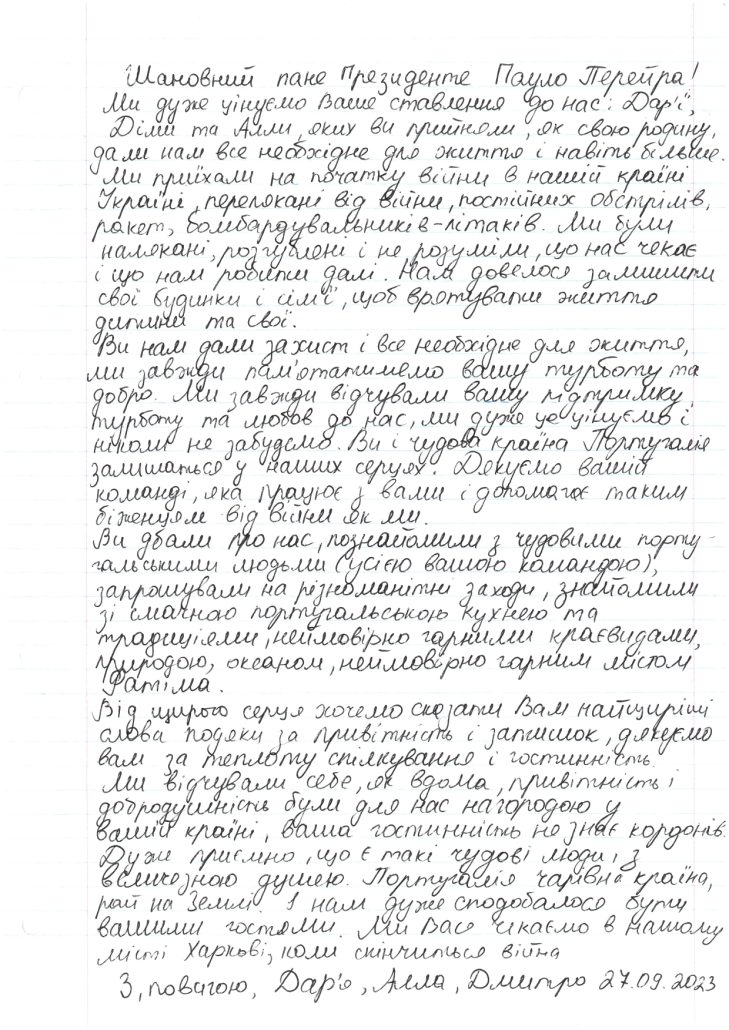 Шановний пане Президенте Пауло Перейра!
Ми дуже цінуємо Ваше ставлення до нас: Дар'ї,
Діми та Алли, яких ви прийняли, як свою родину,
дали нам все необхідне для життя і навіть більше.
Ми приїхали на початку війни в нашій країні
Україні, перелякані від війни, постійних обстрілів,
ракет, бомбардувальників-літаків. Ми були
налякані, розгублені і не розуміли, що нас чекає
і що нам робити далі. Нам довелося залишити
свої будинки і сім'ї, щоб врятувати життя
дитини та свої.
Ви нам дали захист і все необхідне для життя,
ми завжди пам'ятатимемо вашу турботу та
добро. Ми завжди відчували вашу підтримку,
турботу та любов до нас, ми дуже це цінуємо і
ніколи не забудемо. Ви і чудова країна Португалія
залишаться у наших серцях. Дякуємо вашій
команді, яка працює з вами і допомагає таким
біженцям від війни як ми.
Ви дбали про нас, познайомили з чудовими порту-
гальськими людьми (усією вашою командою),
запрошували на різноманітні заходи, знайомили
зі смачною португальською кухнею та
традиціями, неймовірно гарними краєвидами,
природою, океаном, неймовірно гарним містом
Фатіма.
Від щирого серця хочемо сказати Вам найщиріші
слова подяки за привітність і затишок, дякуємо
вам за теплоту спілкування і гостинність.
Ми відчували себе, як вдома, привітність і
добродушність були для нас нагородою у
вашій країні, ваша гостинність не знає кордонів.
Дуже приємно, що є такі чудові люди, з
величезною душею. Португалія чарівна країна,
рай на Землі. І нам дуже сподобалося бути
вашими гостями. Ми Вас чекаємо в нашому
місті Харкові, коли скінчиться війна
З, повагою, Дар'я, Алла, Дмитро 27.09.2023